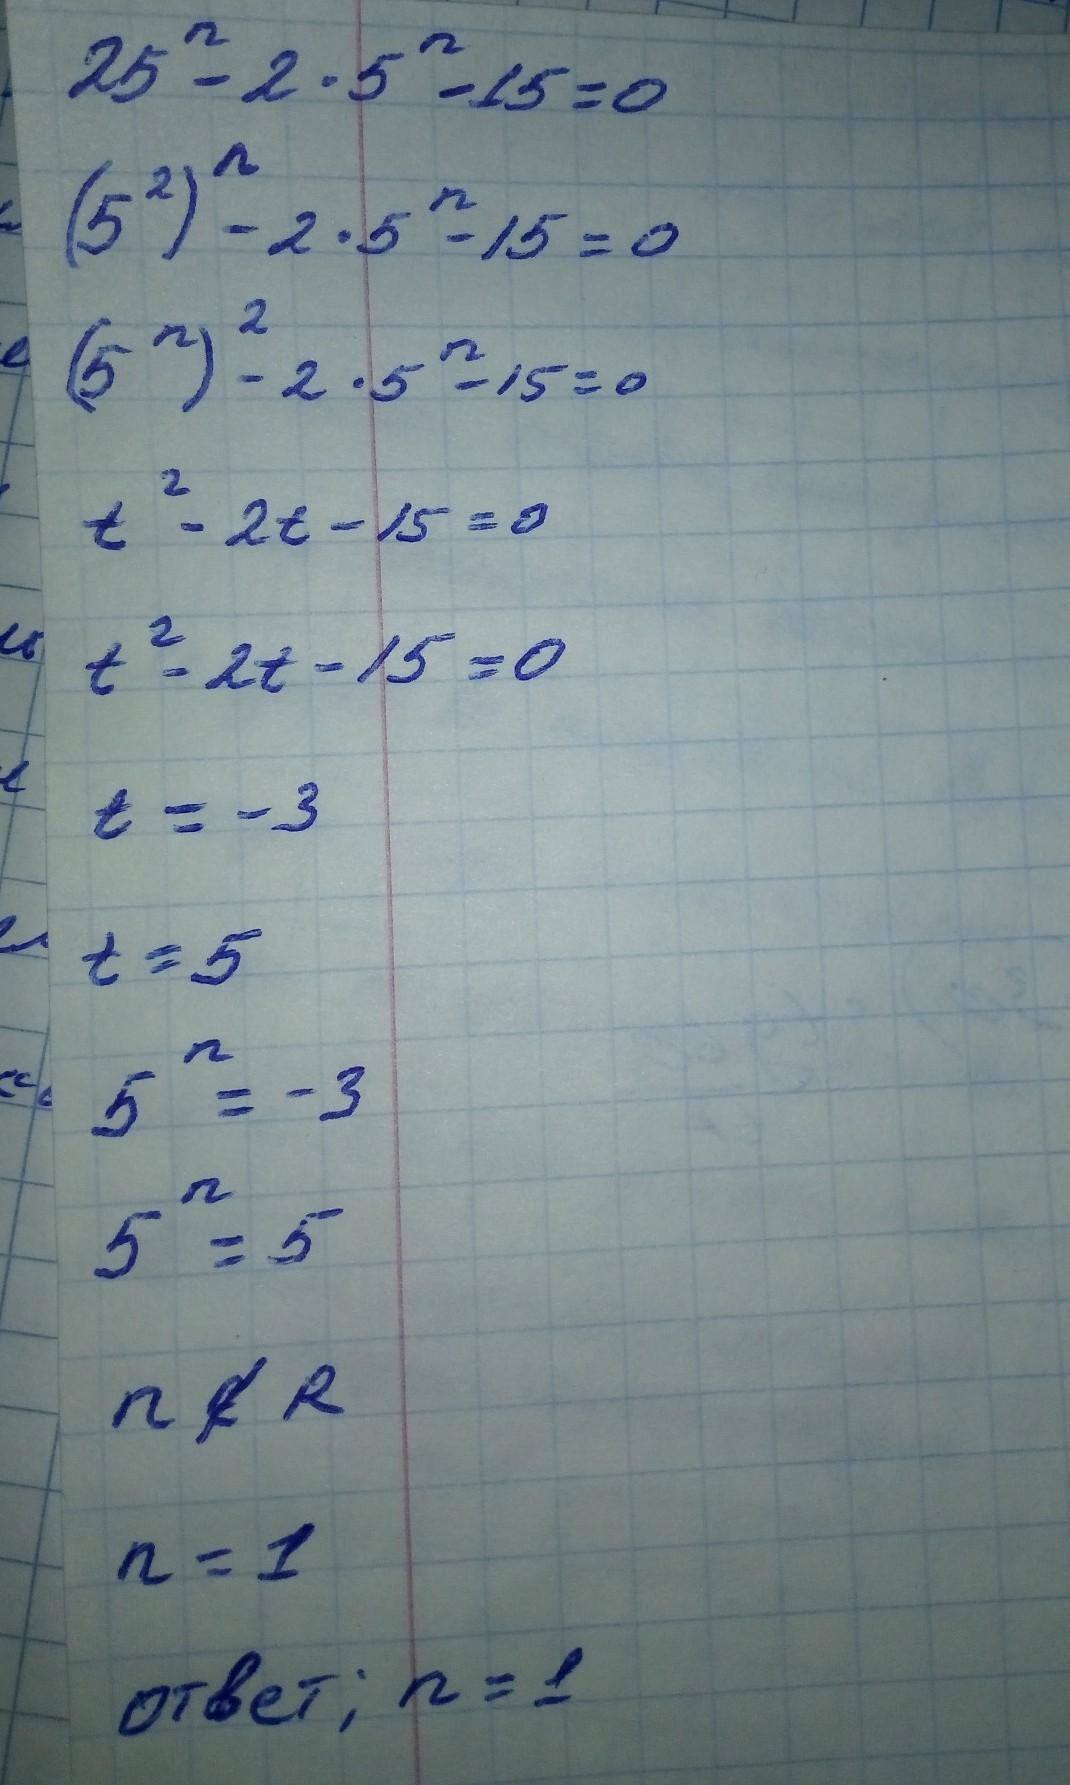 25ⁿ - 2 · 5ⁿ - 15 = 0
(5²)ⁿ - 2 · 5ⁿ - 15 = 0
(5ⁿ)² - 2 · 5ⁿ - 15 = 0
t² - 2t - 15 = 0
t² - 2t - 15 = 0
t = -3
t = 5
5ⁿ = -3
5ⁿ = 5
n ∉ R
n = 1
ответ; n = 1